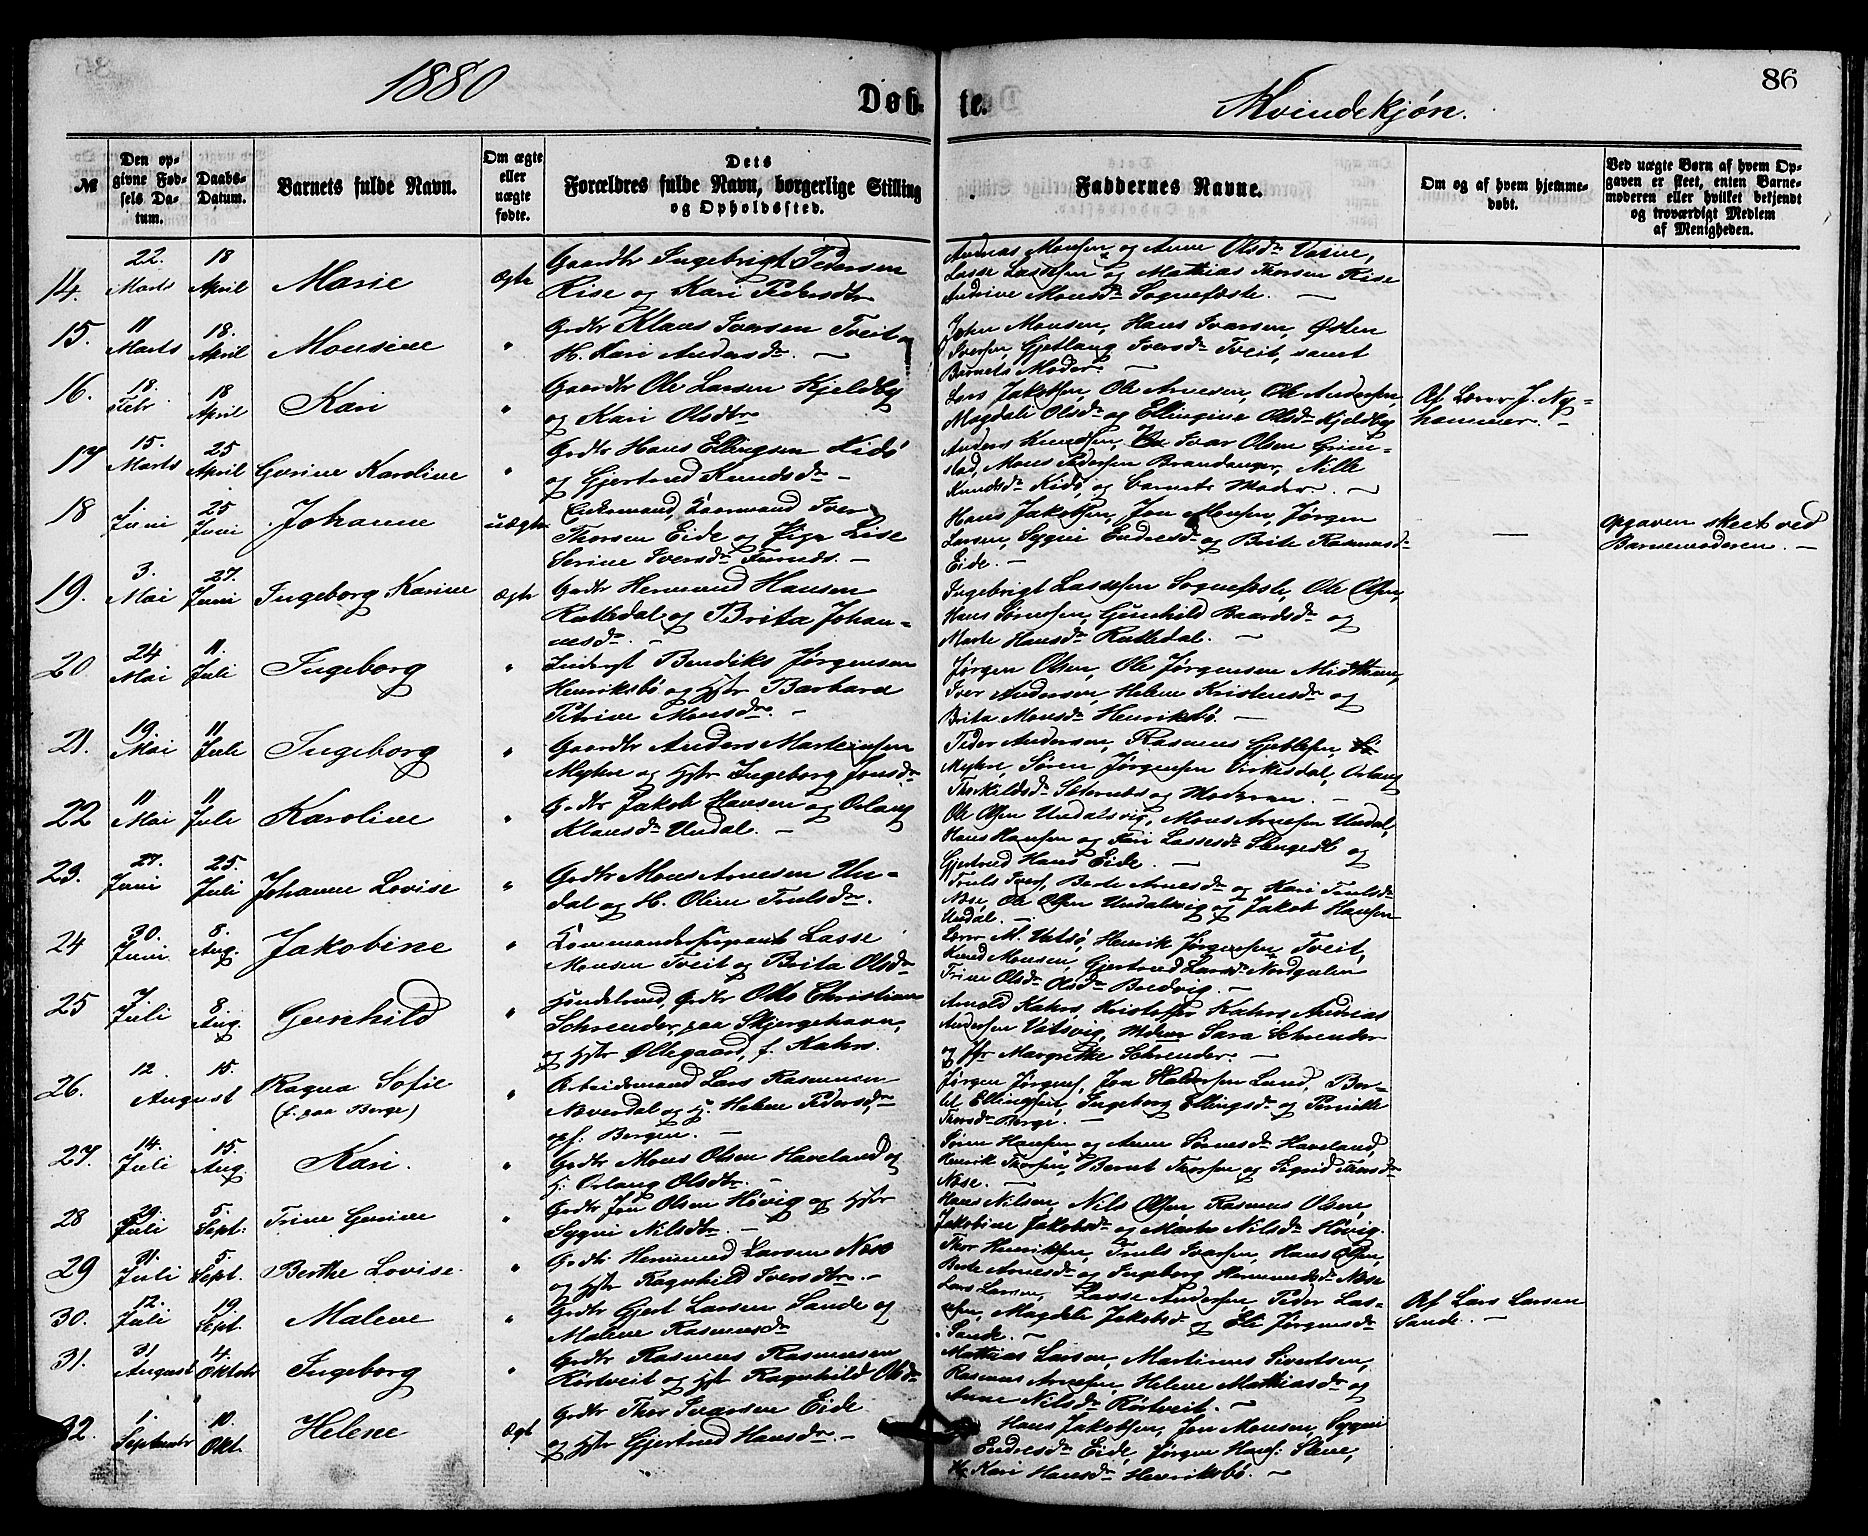 1880
Døb- te. Kvindekjøn.
86
№
Den opgivne Fødsels Datum.
Daabs-Datum.
Barnets fulde Navn.
Om ægte eller uægte fødte.
Dets Forældres fulde Navn, borgerlige Stilling og Opholdssted.
Faddernes Navne.
Om og af hvem hjemmedøbt.
Ved uægte Børn af hvem Opgaven er skeet, enten Barnemoderen eller hvilket bekjendt og troværdigt Medlem af Menigheden.
14. 22. Marts 18 April Marie ægte
Gaardbr Ingebrigt Pedersen
Rise og Kari Pedersdtr
Andreas Monsen og Anne Olsdr
Lasse Lassesen og Mathias Thorsen Rise
Andrine Monsdr Sognefæste. —
15. 11 Marts 18. April Monsine "
Grdbr Klaus Iversen Tveit
H. Kari Andersdr. —
John Monsen, Hans Ivarsen, Østen
Iversen, Gjetlaug Iversdr Tveit, samt
Barnets Moder. —
16. 18. Febr. 18 April Kari "
Gaardbr Ole Larsen Kjeldby
og Kari Olsdtr
Lars Jakobsen, Ole Arnesen, Ole Andersen,
Magdali Olsdr og Ellingine Olsdr Kjeldby
Af Lærer J. Ny-
hammer. —
17 15. Marts 25 April Gurine Karoline "
Grdbr Hans Ellingsen Kidø
og Gjertrud Knudsdr —
Anders Knudsen, Ivar Olsen Grim-
stad, Mons Pedersen Brandanger, Nille
Knudsdr Kidø og barnets Moder. —
18 1 Juni 25 Juni Johanne uægte
Enkemand, Iver
Thorsen Eide og Pige Lise
Serine Iversdr —
Hans Jakobsen, Jon Monsen, Jørgen
Larsen, Sygni Endresdr og Brite Rasmusdr
Eide. —
—
Opgaven skeet ved
Barnemoderen. —
19. 3. Mai 27. Juni Ingeborg Karine ægte
Grdbr Hermund Hansen
Rutledal og Brita Johan-
nesdr. —
Ingebrigt Lassesen Sognefæste, Ole Olsen,
Hans Simonsen, Gunhild Baardsdr og
Marte Hansdr Rutledal. —
20. 24 Mai 11. Juli Ingeborg "
Bendiks Jørgensen
Henriksbø og Hstr Barbara
Petrine Monsdr. —
Jørgen Olsen, Ole Jørgensen Midttun,
Iver Andersen, Helene Kristensdr og
Brita Monsdr Henriksbø. —
21. 19. Mai 11 Juli Ingeborg "
Gaardbr Anders Martinsen
Myhre og Hstr Ingeborg Jonsdr
Peder Andersen, Rasmus
Myhre, Søren Jørgensen Virkesdal, Orlaug
Thorkildsdr og Moderen. —
22 11 Mai 11 Juli Karoline "
Grdbr Jakob Hansen og Orlaug
Klausdr Undal. —
Ole Olsen Undalsvig, Mons Arnesen Undal,
Hans Hansen og Kari Lassesdr og
Gjertrud Hans Eide. —
23. 27. Juni 25. Juli Johanne Lovise "
Grdbr Mons Arnesen Un-
dal og H. Oline Trulsdr.
Truls Ivers, Berte Arnesdr og Kari Trulsdr
Næse, Ole Olsen Undalsvig og Jakob Hansen
Undal. —
24 30. Juni 8. Aug. Jakobine "
Kommandersergeant Lasse
Monsen Tveit og Brita Olsdr
Lærer M. Vatsø, Henrik Jørgensen Tveit,
Knud Monsen, Gjertrud Larsdr Nordgulen
Trine Olsdr Olsdr Bredvig. —
25 7 Juli 8. Aug. Gunhild "
Handelsmd, Grdbr Otto Christian
Schreuder, paa Skjergehavn,
og Hstr Øllegaard, f. Kahrs.
Arnold Kahrs, Kristoffer Kahrs, Andreas
Andersen Vatsvig, Sara Schreuder
og Margrethe Schreuder. —
26. 12. 15. August Ragna Sofie "
(f. paa Berge)
Arbeidsmand Lars Rasmusen
Nverdal og H. Helene Pedersdr,
opf. Bergen. —
Jørgen Jørgens, Jon Haldorsen Lund, Ber-
til Ellingsen, Ingeborg Ellingsdr og Pernille
Thorsdr Berge. —
27. 14. Juli 15. Aug. Kari. "
Grdbr Mons Olsen Haveland og
H. Orlaug Olsdtr. —
Søren Hansen og Anne Sørensdr Haveland,
Henrik Thorsen, Bernt Thorsen og Sigrid Thorsdr
Næse. —
28 29. Juli 5. Sept. Trine Gurine "
Grdbr Jon Olsen Høvig og Hstr
Sygni Nilsdtr. —
Hans Nilsen, Nils Olsen, Rasmus Olsen,
Jakobine Jakobsdr og Marte Nilsdr Høvig.
29 31. Juli 5 Sept. Berthe Lovise "
Grdbr Hermund Larsen Næse
og Hstr Ragnhild Iversdtr. —
Thor Henriksen, Truls Ivarsen, Hans Olsen,
Berte Arnesdr og Ingeborg Hermundsdr Næse
30. 12. Juli 19. Sept. Malene "
Grdbr Gjert Larsen Sande og
Malene Rasmusdr
Lars Larsen, Lasse Andersen, Peder Las-
sesen, Magdeli Jakobsd og Eli Jørgensdr
Sande. —
Af Lars Larsen
Sande. —
31. 31 August 4. Oktobr Ingeborg "
Grdbr Rasmus Rasmusen
Rørtveit og Hstr Ragnhild Olsdr
Mathias Larsen, Martinus Sivertsen,
Rasmus Arnesen, Helene Mathiasdr og
Anne Nilsdr Rørtveit. —
32. 1. Septembr 10. Okt. Helene ægt
Grdbr Thor Ivarsen Eide
og Hstr Gjertrud Hansdr. —
Hans Jakobsen, Jon Monsen, Sygni
Endresdr Eide, Jørgen Hans:
Kari Hansdr Henriksbø. —